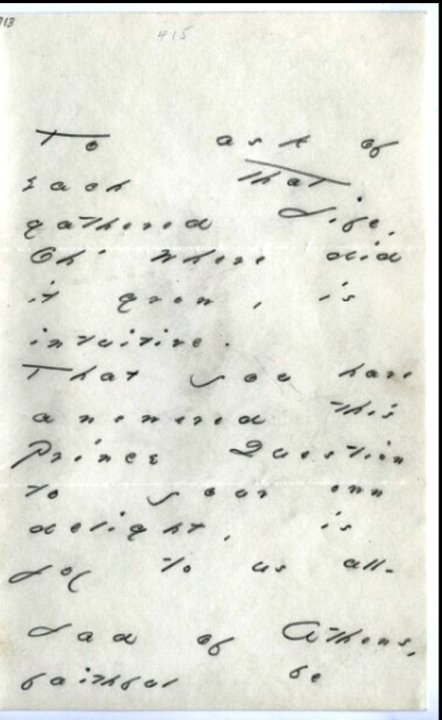 913
415
To ask of
each that
gathered Life,
Oh' where did
it grow, is
intuitive.
That you have
answered this
Prince Question
to your own
delight, is
joy to us all-
Lad of Athens,
faithful be